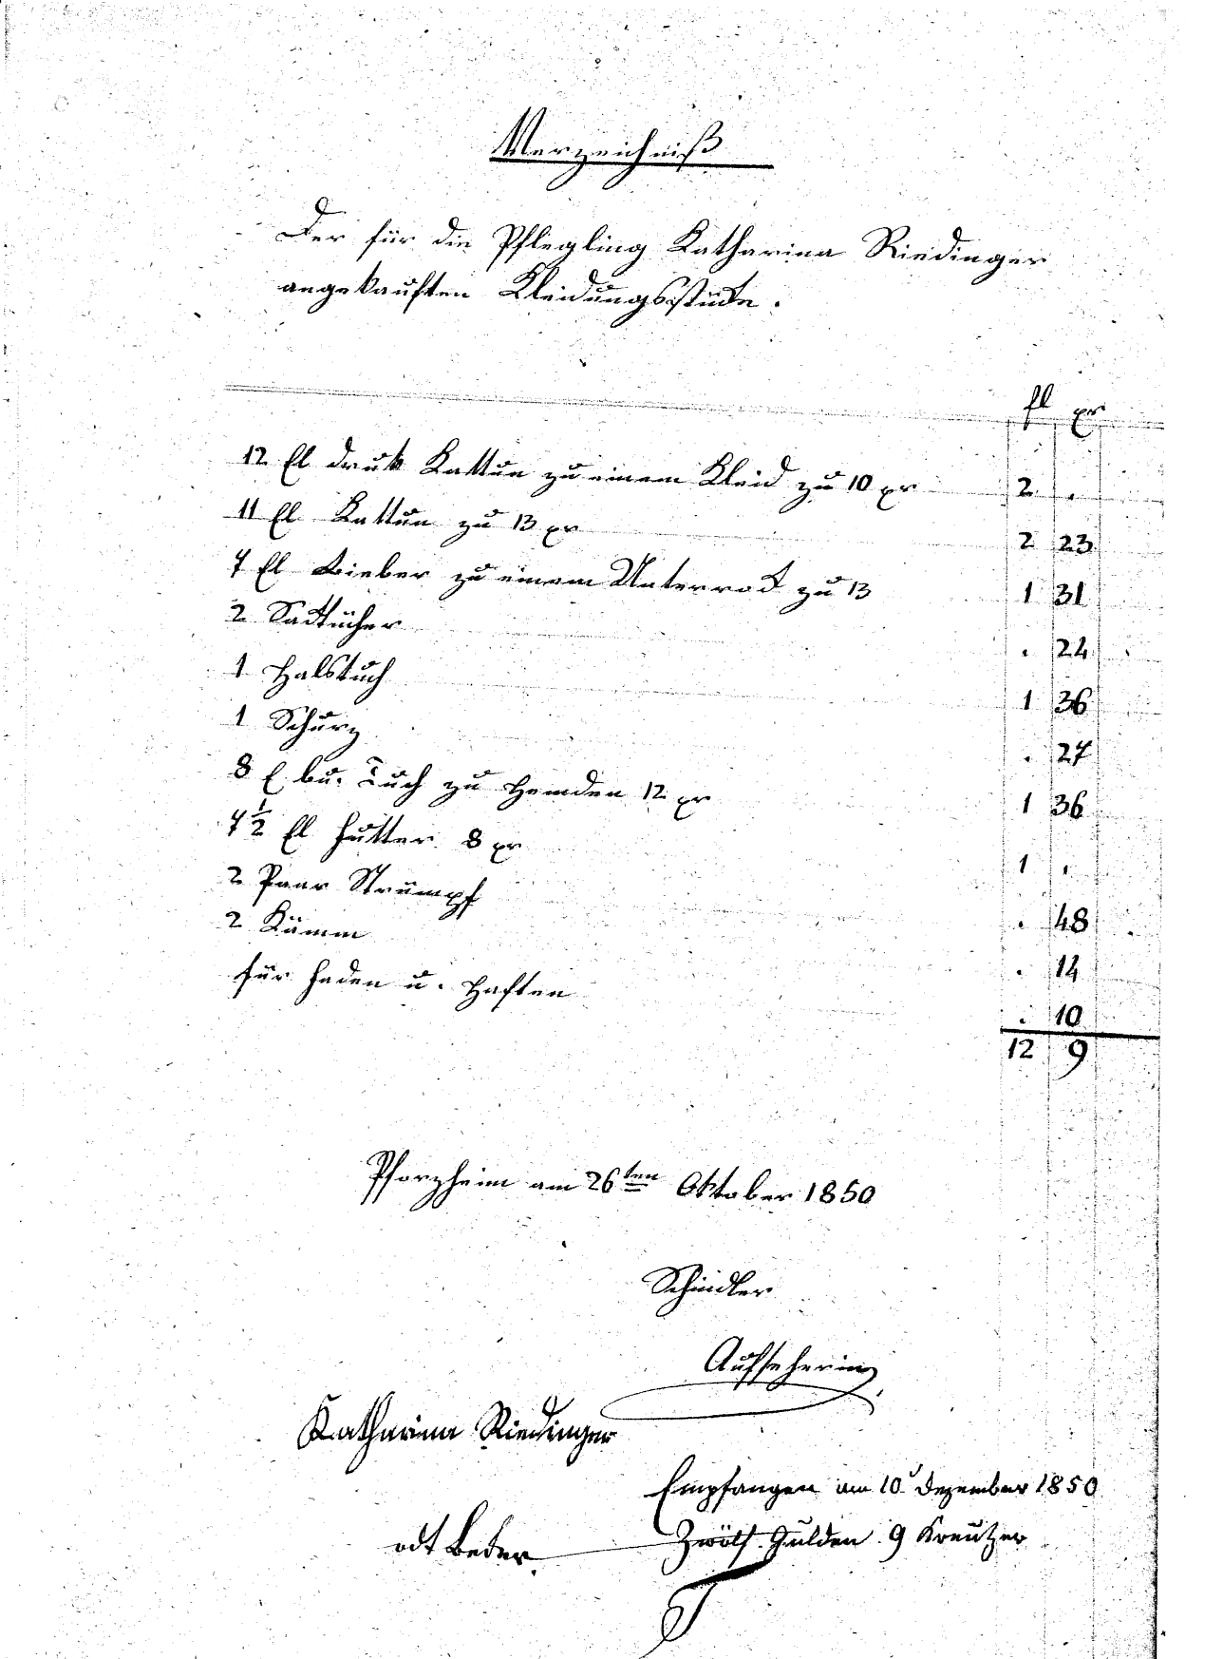 Verzeichniß
Der für die Pflegling Katharina Riedinger
angekauften Kleidungsstücke.
fl xr
12 El druk Kattun zu einem Kleid zu 10 xr 2 .
11 El Kattun zu 13 xr 2 23
7 El Bieber zu einem Unterrock zu 13 1 31
2 Sacktücher . 24
1 Halstuch 1 36
1 Schurz . 27
8 E bu. Tuch zu Hemden 12 xr 1 36
7 1/2 El Futter 8 xr 1 .
2 Paar Strümpf . 48
2 Kämm . 14
für Faden u. Haften . 10
12 9
Pforzheim am 26ten Oktober 1850
Schindler
Aufseherin
Katharina Riedinger
Empfangen am 10 Dezember 1850
Zwölf Gulden 9 Kreutzer